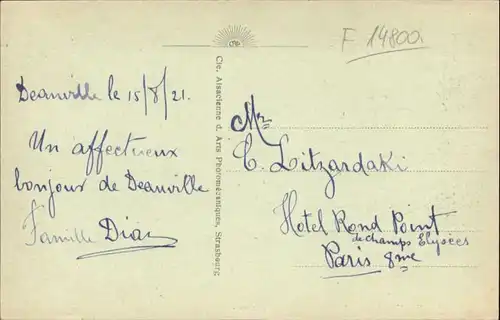 F 14800.
Deauville le 15/8/21.
Un affectueux
bonjour de Deauville
Famille Dian
Cie. Alsacienne d. Arts Photomécaniques, Strasbourg
Mr
C. Litzardaki
Hotel Rond Point
de champs Elysées
Paris 8me